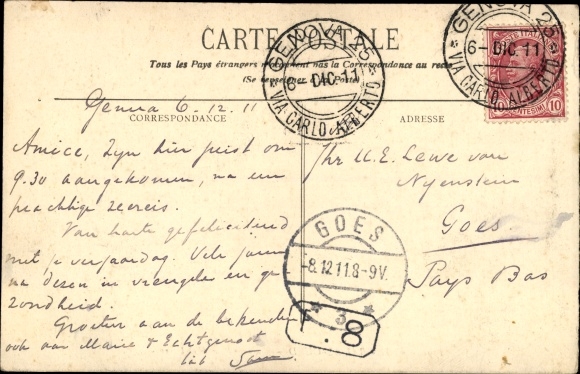 CARTE POSTALE
Tous les Pays étrangers n'acceptent pas la Correspondance au recto
(Se renseigner à la Poste)
GENOVA 25
6 - DIC. 11
VIA CARLO ALBERTO
GENOVA 25
6 - DIC. 11
VIA CARLO ALBERTO
POSTE ITALIANE
CENTESIMI 10
Genua 6.12.11
CORRESPONDANCE
ADRESSE
Amice, Zijn hier juist om
9.30 aangekomen, na een
prachtige zeereis.
Van harte gefeliciteerd
met je verjaardag. Vele jaren
na dezen in vreugde en ge
zondheid.
Groeten aan de bekenden
ook aan Marie & Echtgenoot
Jhr. Lewe van
Nyenstein
Goes
Pays Bas
GOES
-8.12.11.8-9V.
* 3 *
8